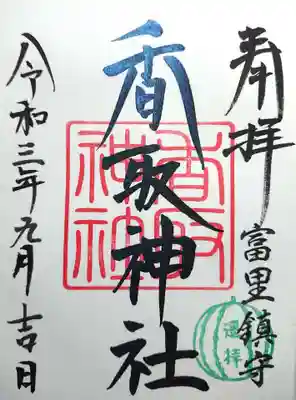 奉拝
富里鎮守
香取神社
香取神社
遥拝
令和三年九月吉日